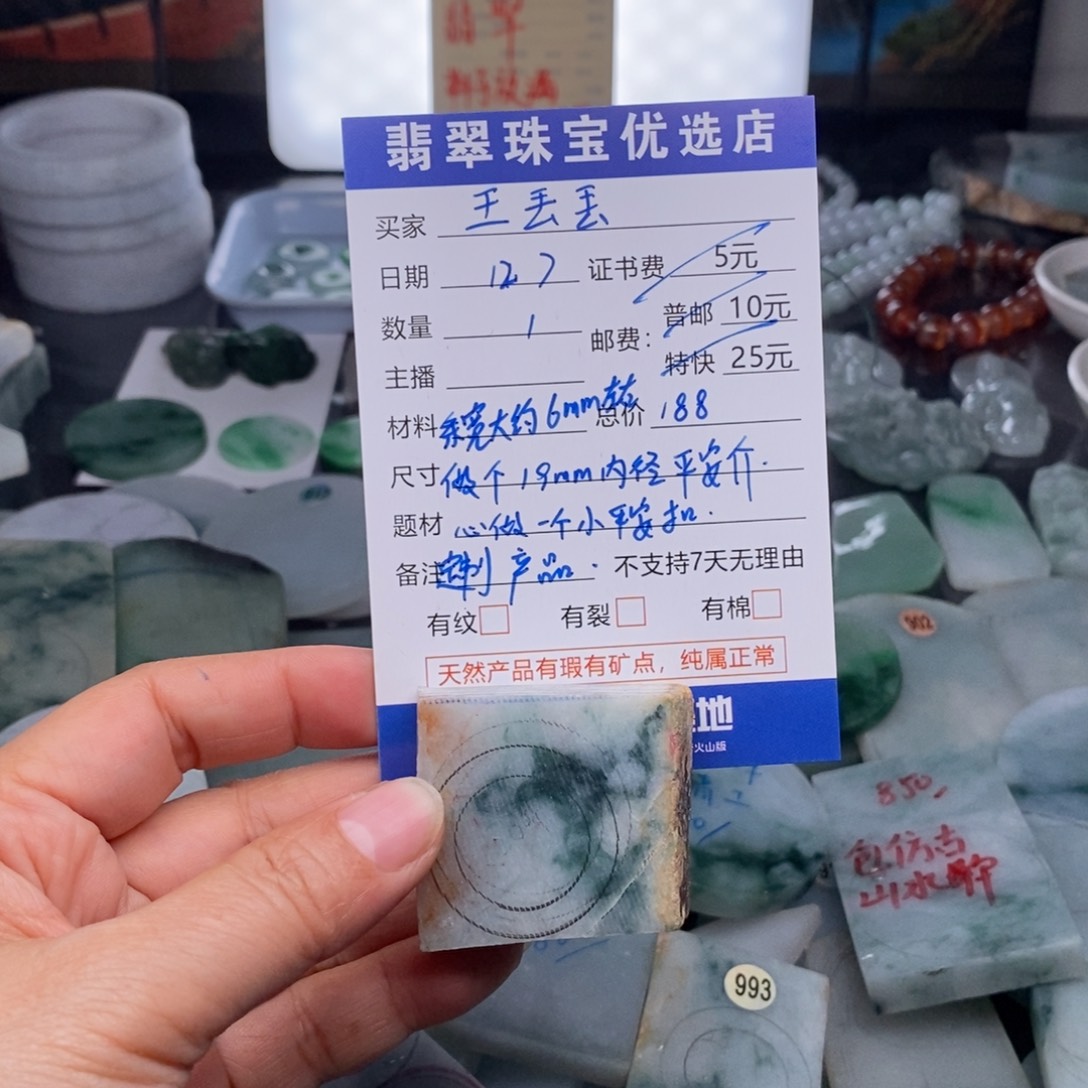 翡翠
翡翠珠宝优选店
买家 王丢丢
日期 12.7 证书费 5元
数量 1 邮费: 普邮 10元
特快 25元
主播
材料 条宽大约6mm 总价 188
尺寸 做个19mm内径平安介.
题材 心做一个小平安扣.
备注 定制产品. 不支持7天无理由
有纹 有裂 有棉
天然产品有瑕有矿点，纯属正常
地
火山版
902
850
包仿古
山水牌
993